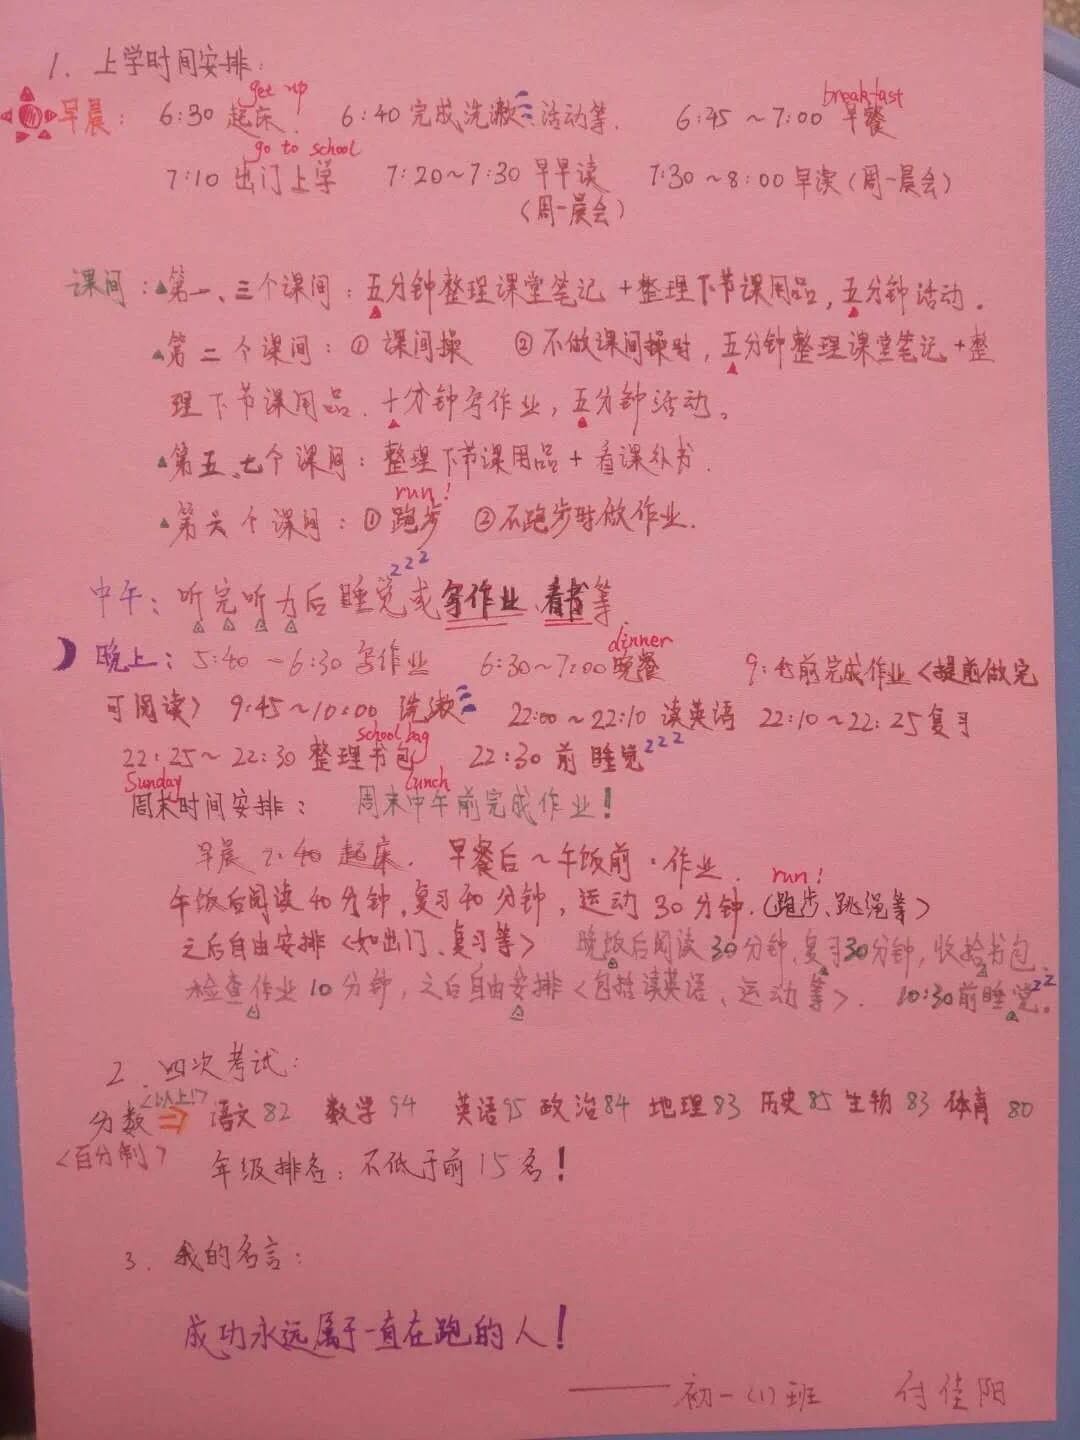 1. 上学时间安排:
get up breakfast
早晨: 6:30 起床. 6:40 完成洗漱、活动等. 6:45 ~ 7:00 早餐
go to school
7:10 出门上学 7:20~7:30 早早读 7:30 ~8:00 早读(周一晨会)
(周一晨会)
课间: 第一、三个课间: 五分钟整理课堂笔记 + 整理下节课用品, 五分钟活动.
第二个课间: ① 课间操 ② 不做课间操时, 五分钟整理课堂笔记 + 整
理下节课用品. 十分钟写作业, 五分钟活动。
第五、七个课间: 整理下节课用品 + 看课外书.
run!
第六个课间: ① 跑步 ② 不跑步时做作业.
zzz
中午: 听完听力后睡觉或写作业、看书等
dinner
晚上: 5:40 - 6:30 写作业 6:30~7:00 晚餐 9:45前完成作业<提前做完
可阅读> 9:45~10:00 洗漱 22:00~22:10 读英语 22:10~22:25复习
school bag
22:25~22:30 整理书包 22:30 前睡觉zzz
Sunday lunch
周末时间安排: 周末中午前完成作业!
早晨 7:40 起床. 早餐后~午饭前: 作业.
run!
午饭后阅读40分钟, 复习40分钟, 运动 30分钟. (跑步、跳绳等>
之后自由安排<如出门、复习等> 晚饭后阅读30分钟, 复习30分钟, 收拾书包.
检查作业10分钟, 之后自由安排<包括读英语、运动等>. 10:30前睡觉zz.
2. 四次考试:
<以上!>
分数⇒ 语文82 数学94 英语95 政治84 地理83 历史85 生物83 体育80
<百分制>
年级排名: 不低于前15名!
3. 我的名言:
成功永远属于一直在跑的人!
——初一(1)班 付佳阳